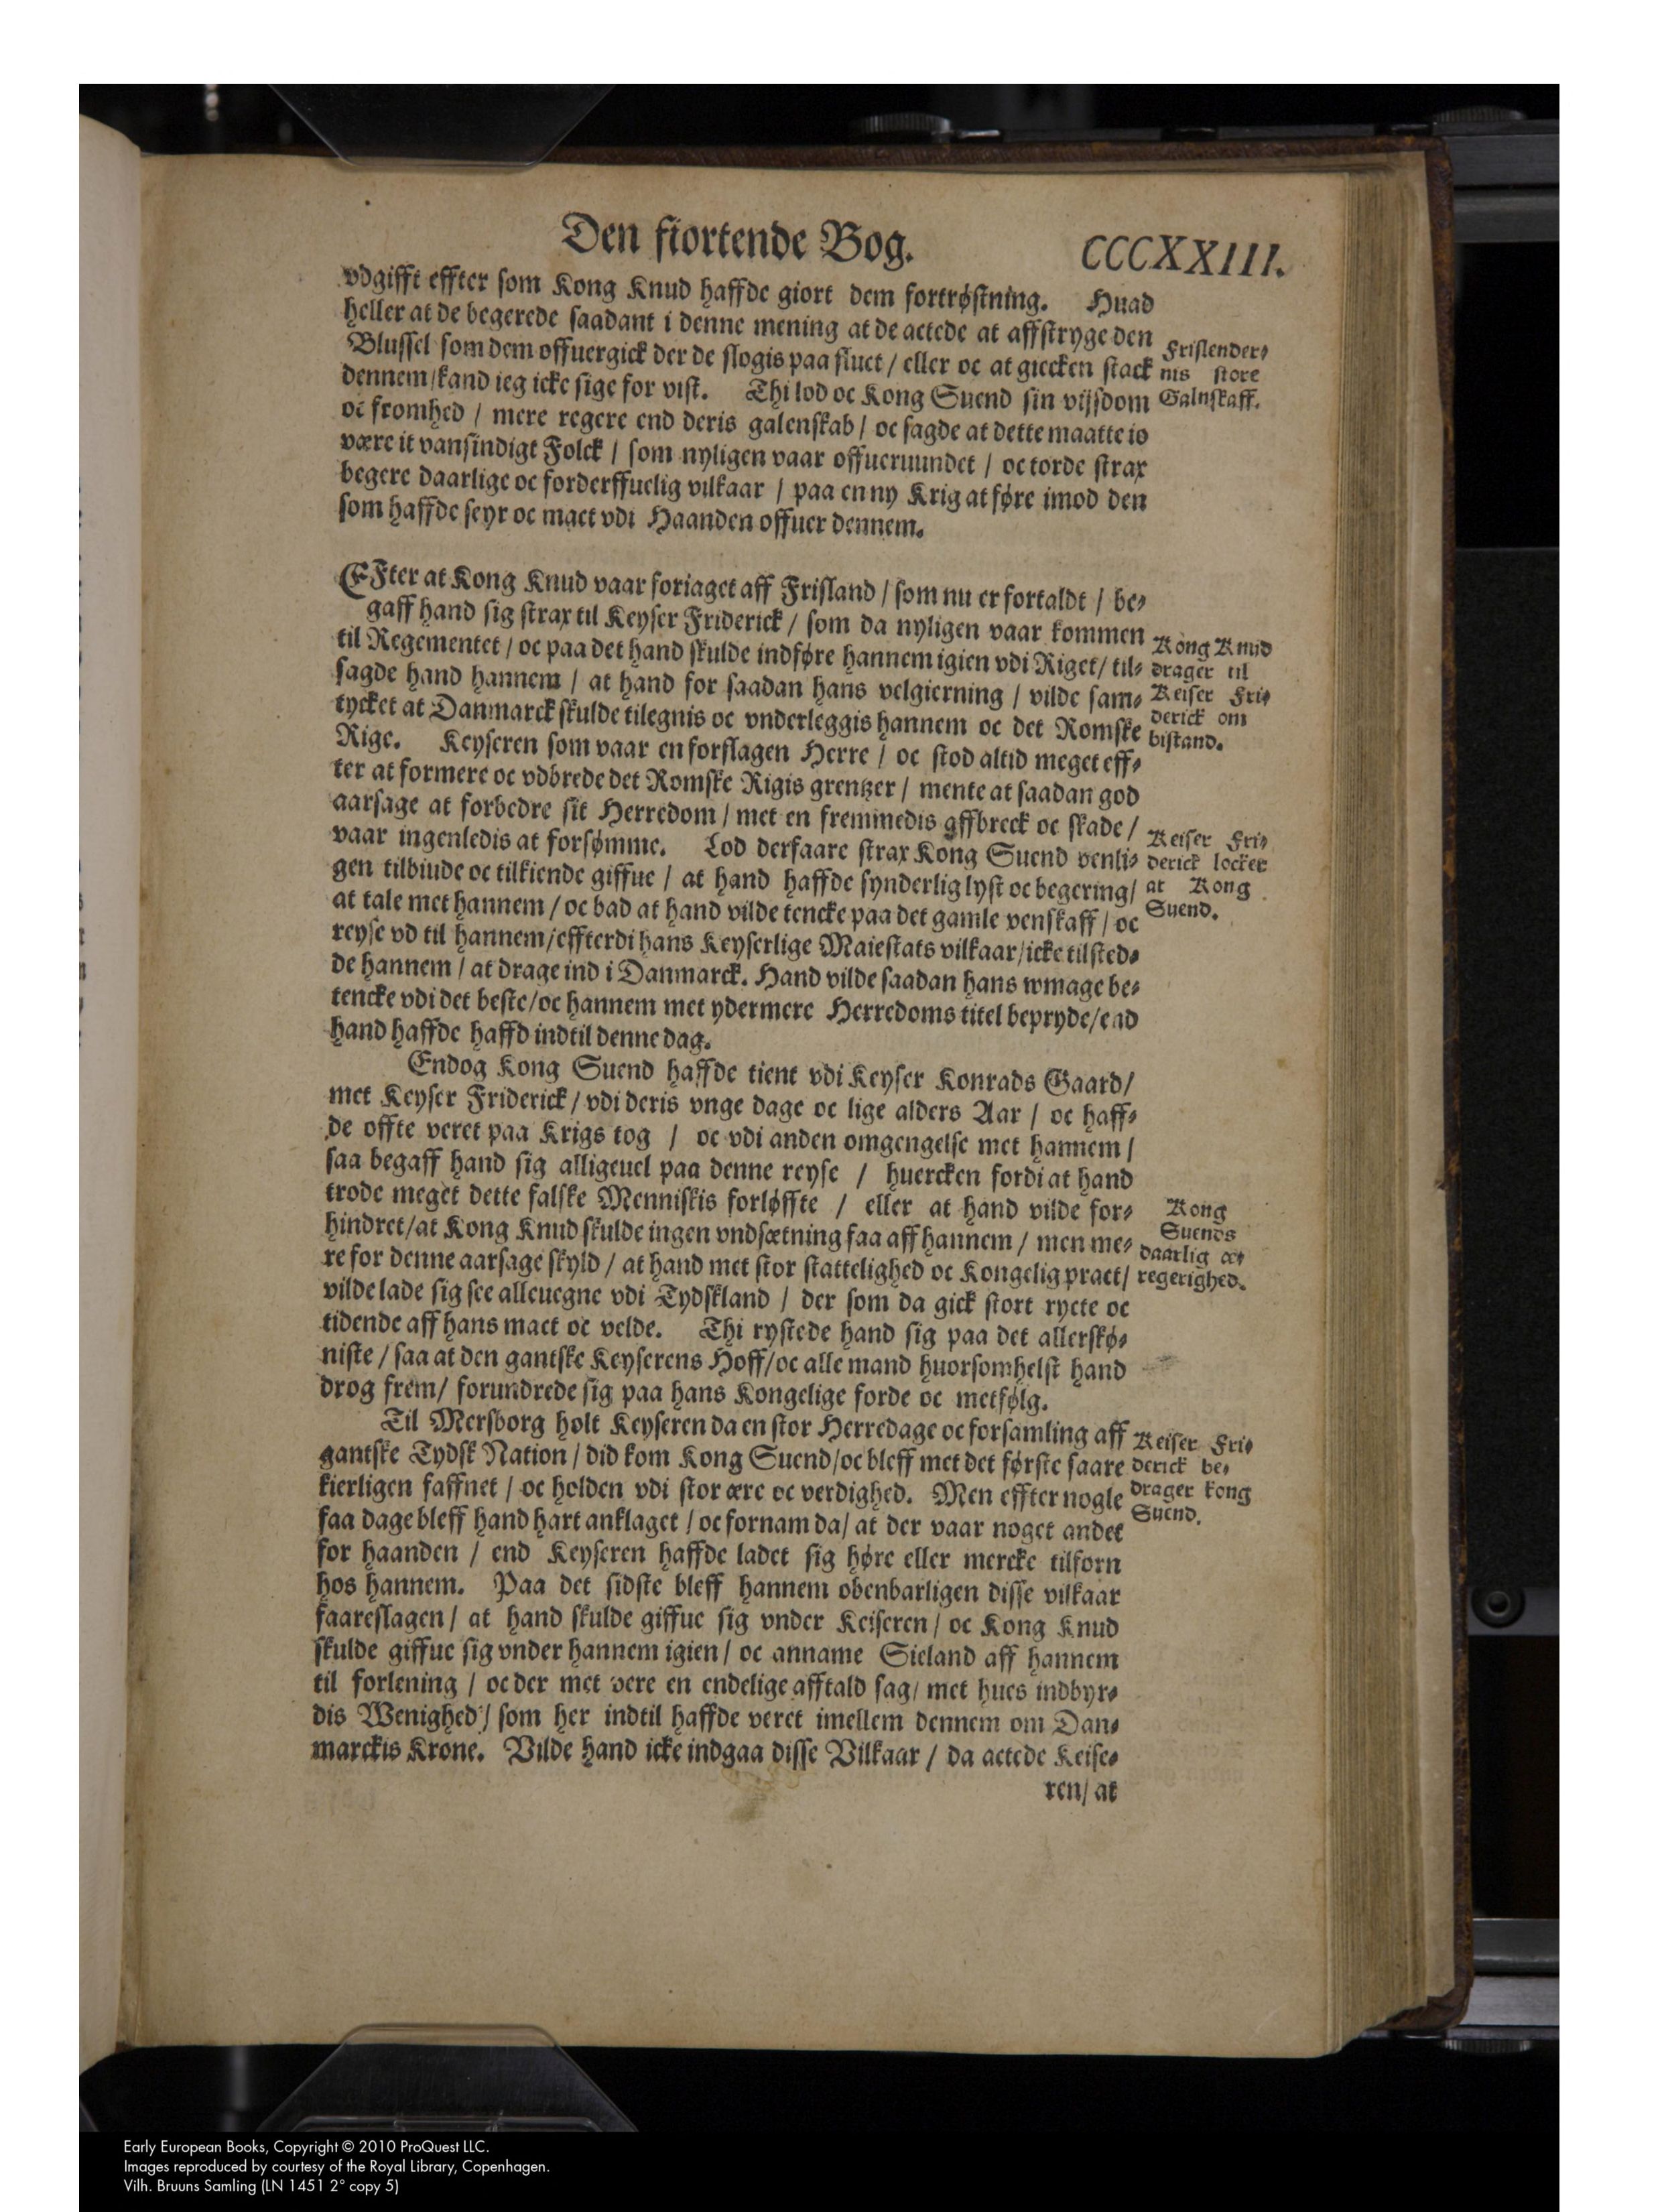 Den fiortende Bog.
CCCXXIII.
vdgifft effter som Kong Knud haffde giort dem fortrøstning. Huad
heller at de begerede saadant i denne mening at de actede at affstryge den
Blussel som dem offuergick der de slogis paa sluct / eller oc at giecken stack
dennem / kand ieg icke sige for vist. Thi lod oc Kong Suend sin vijsdom
oc fromhed / mere regere end deris galenskab / oc sagde at dette maatte io
være it vansindigt Folck / som nyligen vaar offueruundet / oc torde strax
begere daarlige oc forderffuelig vilkaar / paa en ny Krig at føre imod den
som haffde seyr oc mact vdi Haanden offuer dennem.
Frislender⸗
nis store
Galnskaff.
EFter at Kong Knud vaar foriaget aff Frisland / som nu er fortaldt / be⸗
gaff hand sig strax til Keyser Friderick / som da nyligen vaar kommen
til Regementet / oc paa det hand skulde indføre hannem igien vdi Riget / til⸗
sagde hand hannem / at hand for saadan hans velgierning / vilde sam⸗
tycket at Danmarck skulde tilegnis oc vnderleggis hannem oc det Romske
Rige. Keyseren som vaar en forslagen Herre / oc stod altid meget eff⸗
ter at formere oc vdbrede det Romske Rigis grentzer / mente at saadan god
aarsage at forbedre sit Herredom / met en fremmedis affbreck oc skade /
vaar ingenledis at forsømme. Lod derfaare strax Kong Suend venli⸗
gen tilbiude oc tilkiende giffue / at hand haffde synderlig lyst oc begering /
at tale met hannem / oc bad at hand vilde tencke paa det gamle venskaff / oc
reyse vd til hannem / effterdi hans Keyserlige Maiestats vilkaar / icke tilsted⸗
de hannem / at drage ind i Danmarck. Hand vilde saadan hans wmage be⸗
tencke vdi det beste / oc hannem met ydermere Herredoms titel bepryde / end
hand haffde haffd indtil denne dag.
Kong Knud
drager til
Keiser Fri⸗
derick om
bistand.
Keiser Fri⸗
derick locker
at Kong
Suend.
Endog Kong Suend haffde tient vdi Keyser Konrads Gaard /
met Keyser Friderick / vdi deris vnge dage oc lige alders Aar / oc haff⸗
de offte veret paa Krigs tog / oc vdi anden omgengelse met hannem /
saa begaff hand sig alligeuel paa denne reyse / huercken fordi at hand
trode meget dette falske Menniskis forløffte / eller at hand vilde for⸗
hindret / at Kong Knud skulde ingen vndsætning faa aff hannem / men me⸗
re for denne aarsage skyld / at hand met stor stattelighed oc Kongelig pract /
vilde lade sig see alleuegne vdi Tydskland / der som da gick stort rycte oc
tidende aff hans mact oc velde. Thi rystede hand sig paa det allerskø⸗
niste / saa at den gantske Keyserens Hoff / oc alle mand huorsomhelst hand
drog frem / forundrede sig paa hans Kongelige forde oc metfølg.
Kong
Suends
daarlig ær⸗
regerighed.
Til Mersborg holt Keyseren da en stor Herredage oc forsamling aff
gantske Tydsk Nation / did kom Kong Suend / oc bleff met det første saare
kierligen faffnet / oc holden vdi stor ære oc verdighed. Men effter nogle
faa dage bleff hand hart anklaget / oc fornam da / at der vaar noget andet
for haanden / end Keyseren haffde ladet sig høre eller mercke tilforn
hos hannem. Paa det sidste bleff hannem obenbarligen disse vilkaar
faareslagen / at hand skulde giffue sig vnder Keiseren / oc Kong Knud
skulde giffue sig vnder hannem igien / oc anname Sieland aff hannem
til forlening / oc der met vere en endelige afftald sag / met hues indbyr⸗
dis Wenighed / som her indtil haffde veret imellem dennem om Dan⸗
marckis Krone. Vilde hand icke indgaa disse Vilkaar / da actede Keise⸗
ren / at
Keiser Fri⸗
derick be⸗
drager kong
Suend.
Early European Books, Copyright © 2010 ProQuest LLC.
Images reproduced by courtesy of the Royal Library, Copenhagen.
Vilh. Bruuns Samling (LN 1451 2° copy 5)